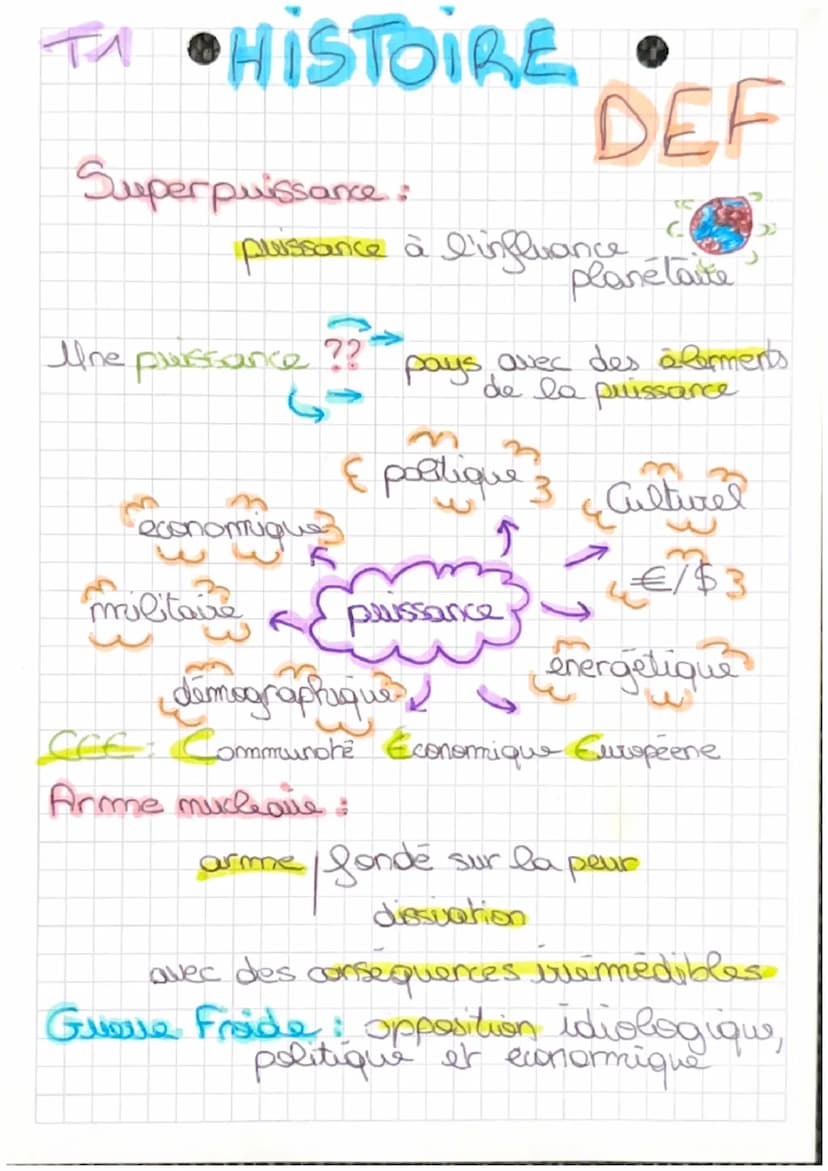 T1
HiSTOiRE
DEF
Superpuissance :
puissance à l'influance
planétaire
Une puissance ?? pays avec des élements
de la puissance
politique
Culturel
economique
€/$
militaire
puissance
énergétique
démographique
CEE : Communoté Économique Européene
Arme nucléaire :
arme | fondé sur la peur
dissuation
avec des conséquences irrémédibles
Guerre Froide : opposition idiologique,
politique et economique